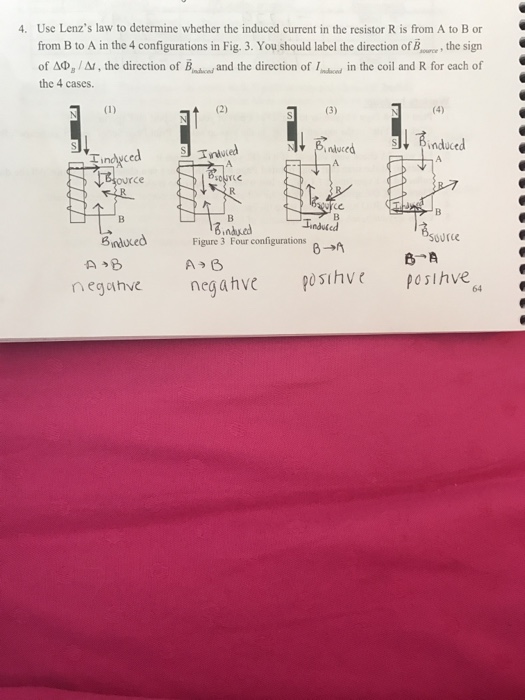 4. Use Lenz's law to determine whether the induced current in the resistor R is from A to B or
from B to A in the 4 configurations in Fig. 3. You should label the direction of B⃗source, the sign
of ΔΦB / Δt, the direction of B⃗induced and the direction of Iinduced in the coil and R for each of
the 4 cases.
(1) (2) (3) (4)
N N S N
S S N S
Induced Induced B⃗induced B⃗induced
A A A
B⃗source B⃗source
R R R R
B⃗source Induced
B B B B
B⃗induced B⃗induced Induced B⃗source
Figure 3 Four configurations
A→B A→B B→A B→A
negative negative positive positive
64